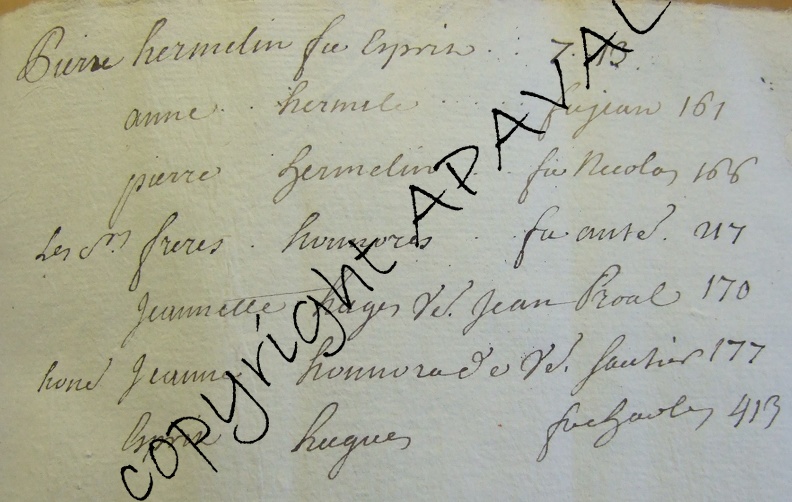 Pierre hermelin fu Esprit . . : 7 13
anne . . hermele . . . fu jean 161
pierre hermelin fu Nicolas 166
Les frères . honnores . . fu anté. 217
Jeannette hugues Vé. Jean Proal 170
Jeanne honnorade Vé. Gautier 177
Esprit hugues fu 413
copyright APAVAL